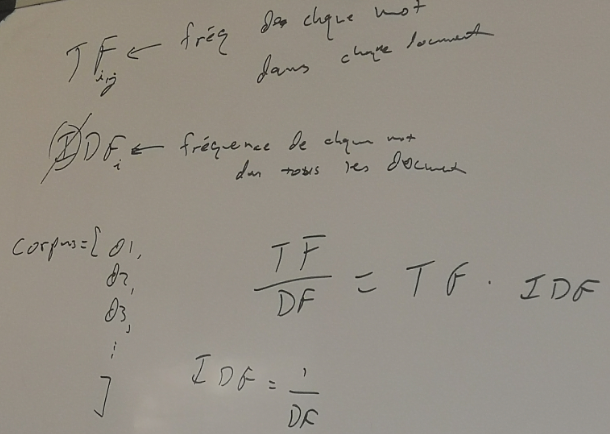 TF i,j ← fréq de chque mot
dans chque document
(I)DF i ← fréquence de chque mot
dan tous les document
corpus = [ D1,
D2,
D3,
⋮
]
TF / DF = TF · IDF
IDF = 1 / DF